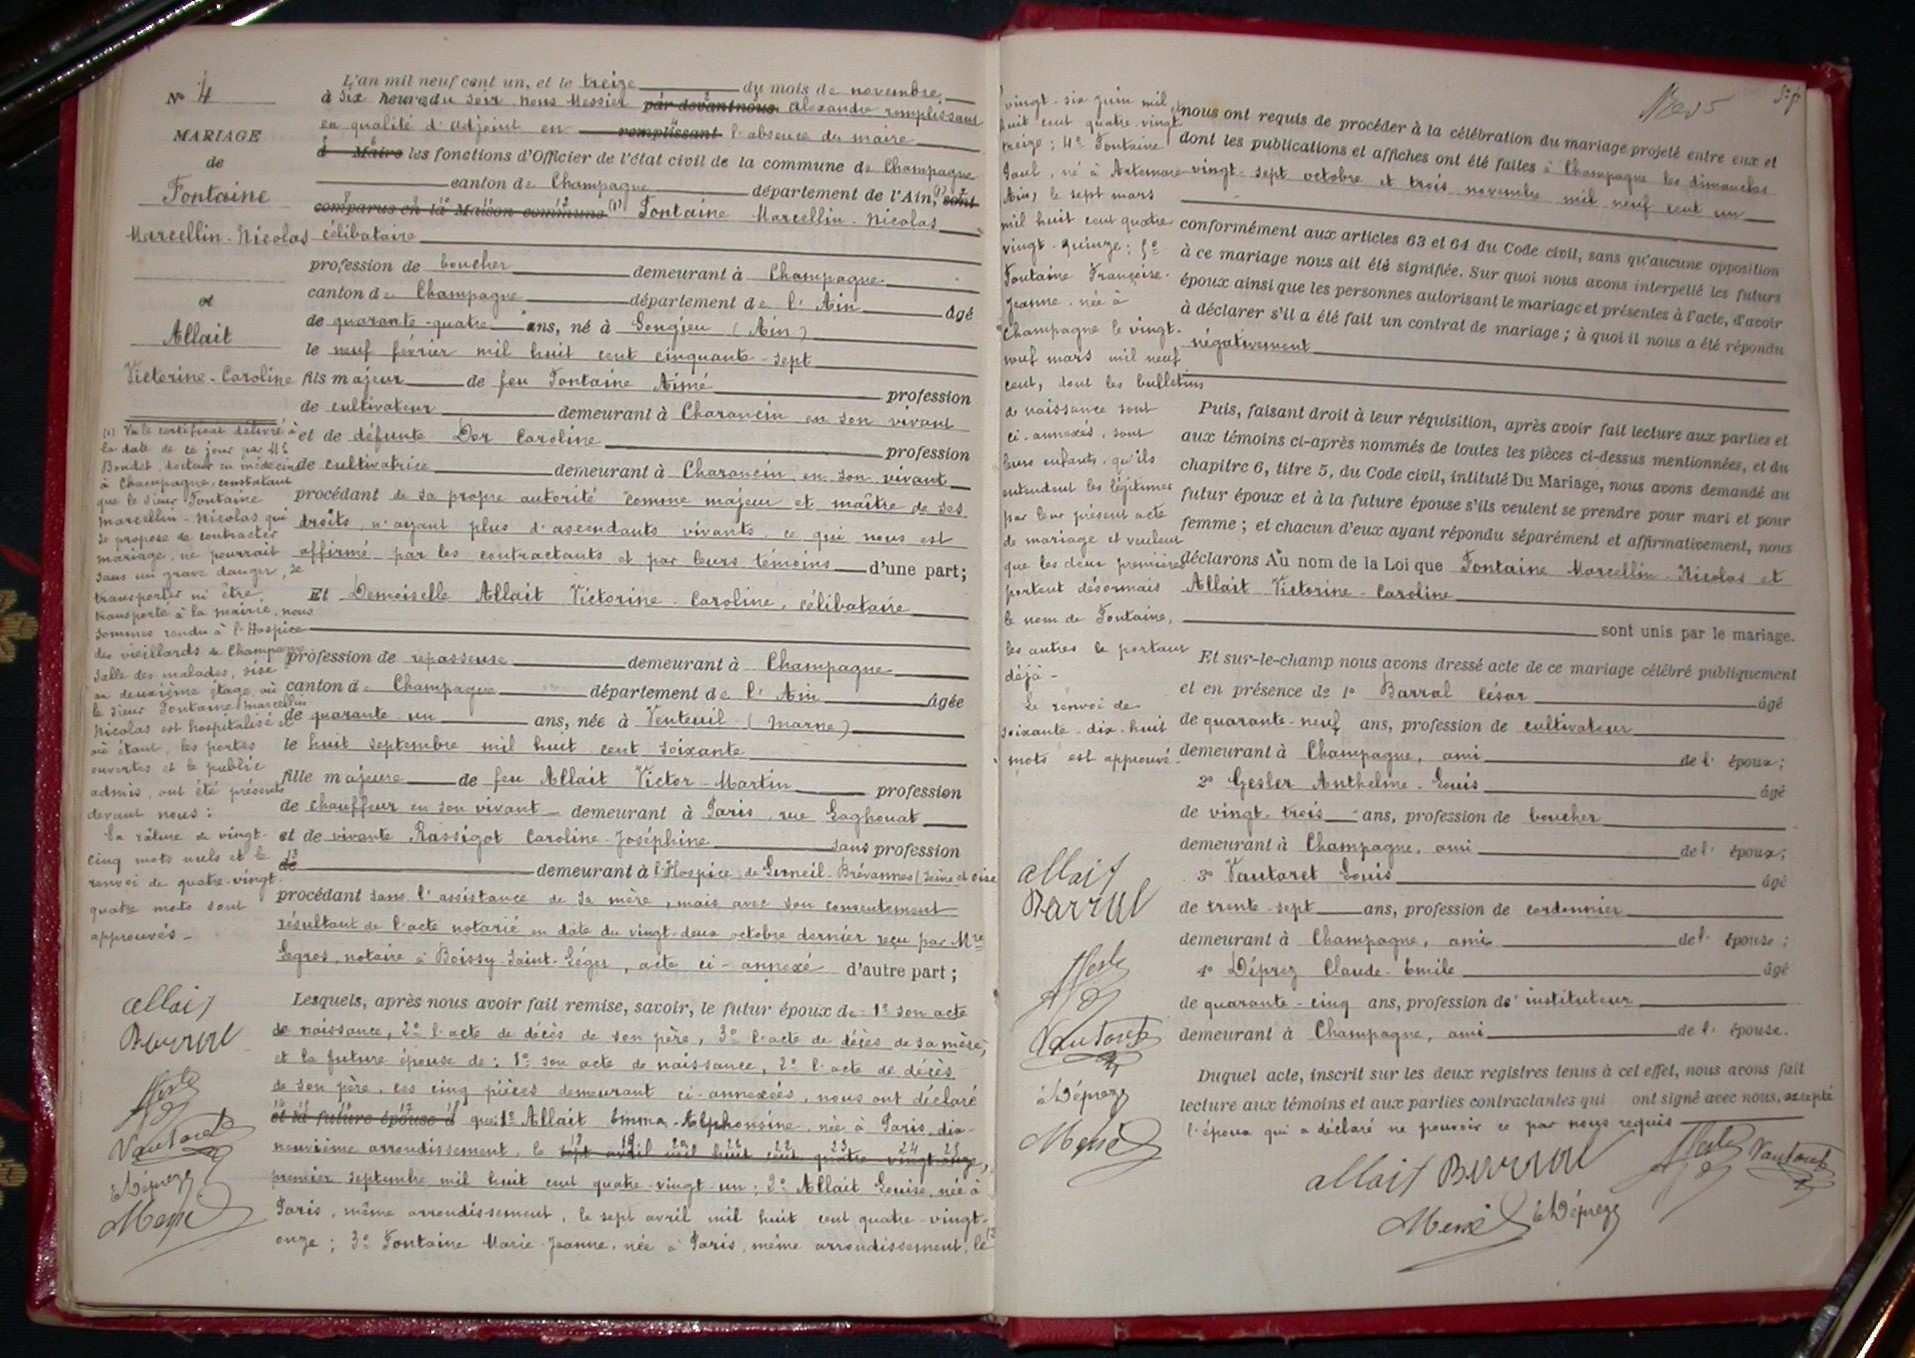 N° 4
MARIAGE
de
Fontaine
Marcellin-Nicolas
et
Allait
Victorine-Caroline
(1) Vu le certificat délivré à
la date de ce jour par Mr
Boudet, docteur en médecine
à Champagne, constatant
que le sieur Fontaine
Marcellin-Nicolas qui
se propose de contracter
mariage, ne pourrait
sans un grave danger, se
transporter ni être
transporté à la mairie, nous
sommes rendu à l'Hospice
des vieillards de Champagne
salle des malades, sise
au deuxième étage, où
le sieur Fontaine Marcellin
Nicolas est hospitalisé et
où étant, les portes
ouvertes et le public
admis, ont été présents
devant nous :
La rature de vingt-
cinq mots nuls et le
renvoi de quatre-vingt
quatre mots sont
approuvés -
allait
Barral
Vautaret
Déprez
L'an mil neuf cent un, et le treize du mois de novembre
à six heures du soir nous Messier par devant nous Alexandre remplissant
en qualité d'adjoint en remplissant l'absence du maire
d Maire les fonctions d'Officier de l'état civil de la commune de Champagne
canton de Champagne département de l'Ain, sont
comparus en la Maison commune (1) Fontaine Marcellin-Nicolas
célibataire
profession de boucher demeurant à Champagne
canton de Champagne département de l'Ain âgé
de quarante-quatre ans, né à Songieu (Ain)
le neuf février mil huit cent cinquante-sept
fils majeur de feu Fontaine Aimé profession
de cultivateur demeurant à Charancin en son vivant
et de défunte Dor Caroline profession
de cultivatrice demeurant à Charancin en son vivant
procédant de sa propre autorité comme majeur et maître de ses
droits, n'ayant plus d'ascendants vivants, ce qui nous est
affirmé par les contractants et par leurs témoins d'une part;
Et Demoiselle Allait Victorine-Caroline, célibataire
profession de repasseuse demeurant à Champagne
canton de Champagne département de l'Ain âgée
de quarante-un ans, née à Venteuil (Marne)
le huit septembre mil huit cent soixante
fille majeure de feu Allait Victor-Martin profession
de chauffeur en son vivant demeurant à Paris, rue Laghouat
et de vivante Rassigot Caroline-Joséphine sans profession
de demeurant à l'Hospice de Limeil-Brévannes (Seine et Oise
procédant sans l'assistance de sa mère, mais avec son consentement
résultant de l'acte notarié en date du vingt-deux octobre dernier reçu par Mre
Legros, notaire à Boissy-Saint-Léger, acte ci-annexé d'autre part;
Lesquels, après nous avoir fait remise, savoir, le futur époux de : 1° son acte
de naissance, 2° l'acte de décès de son père, 3° l'acte de décès de sa mère,
et la future épouse de : 1° son acte de naissance, 2° l'acte de décès
de son père, ces cinq pièces demeurant ci-annexées, nous ont déclaré
et la future épouse d que 1° Allait Emma-Alphonsine, née à Paris, dix-
neuvième arrondissement, le sept avril mil huit cent quatre vingt onze,
premier septembre mil huit cent quatre-vingt-un ; 2° Allait Louise, née à
Paris, même arrondissement, le sept avril mil huit cent quatre-vingt-
onze ; 3° Fontaine Marie-Jeanne, née à Paris, même arrondissement, le
vingt-six juin mil
huit cent quatre-vingt
treize ; 4° Fontaine
Paul, né à Artemare
Ain, le sept mars
mil huit cent quatre
vingt-quinze ; 5°
Fontaine Françoise-
Jeanne, née à
Champagne le vingt-
neuf mars mil neuf
cent, dont les bulletins
de naissance sont
ci-annexés, sont
leurs enfants, qu'ils
entendent les légitimer
par leur présent acte
de mariage et veulent
que les deux premières
portent désormais
le nom de Fontaine,
les autres le portant
déjà -
Le renvoi de
soixante-dix-huit
mots est approuvé.
allait
Barral
Vautaret
Déprez
nous ont requis de procéder à la célébration du mariage projeté entre eux et
dont les publications et affiches ont été faites à Champagne les dimanches
vingt-sept octobre et trois novembre mil neuf cent un
conformément aux articles 63 et 64 du Code civil, sans qu'aucune opposition
à ce mariage nous ait été signifiée. Sur quoi nous avons interpellé les futurs
époux ainsi que les personnes autorisant le mariage et présentes à l'acte, d'avoir
à déclarer s'il a été fait un contrat de mariage ; à quoi il nous a été répondu
négativement
Puis, faisant droit à leur réquisition, après avoir fait lecture aux parties et
aux témoins ci-après nommés de toutes les pièces ci-dessus mentionnées, et du
chapitre 6, titre 5, du Code civil, intitulé Du Mariage, nous avons demandé au
futur époux et à la future épouse s'ils veulent se prendre pour mari et pour
femme ; et chacun d'eux ayant répondu séparément et affirmativement, nous
déclarons Au nom de la Loi que Fontaine Marcellin-Nicolas et
Allait Victorine-Caroline
sont unis par le mariage.
Et sur-le-champ nous avons dressé acte de ce mariage célébré publiquement
et en présence de 1° Barral César âgé
de quarante-neuf ans, profession de cultivateur
demeurant à Champagne, ami de l'époux;
2° Gesler Anthelme-Louis âgé
de vingt-trois ans, profession de boucher
demeurant à Champagne, ami de l'époux;
3° Vautaret Louis âgé
de trente-sept ans, profession de cordonnier
demeurant à Champagne, ami de l'épouse;
4° Déprez Claude-Emile âgé
de quarante-cinq ans, profession d'instituteur
demeurant à Champagne, ami de l'épouse.
Duquel acte, inscrit sur les deux registres tenus à cet effet, nous avons fait
lecture aux témoins et aux parties contractantes qui ont signé avec nous, excepté
l'époux qui a déclaré ne pouvoir ce par nous requis
allait Barral Vautaret
Déprez